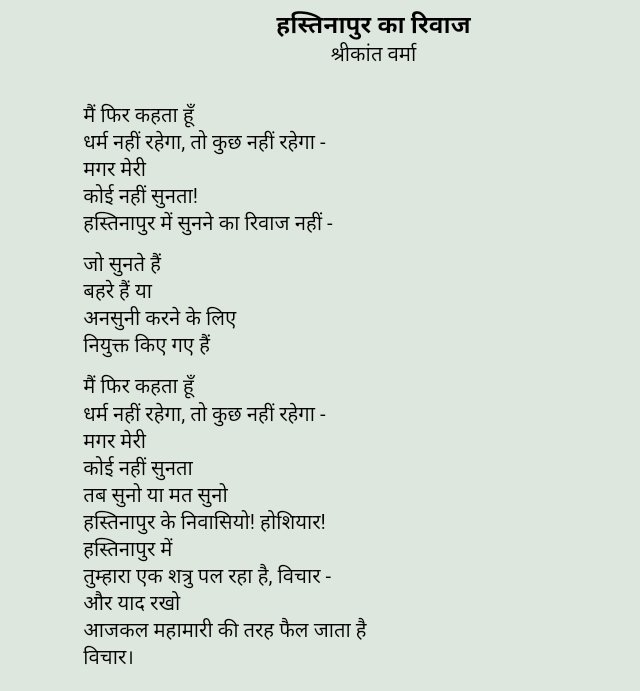 हस्तिनापुर का रिवाज
श्रीकांत वर्मा
मैं फिर कहता हूँ
धर्म नहीं रहेगा, तो कुछ नहीं रहेगा -
मगर मेरी
कोई नहीं सुनता!
हस्तिनापुर में सुनने का रिवाज नहीं -
जो सुनते हैं
बहरे हैं या
अनसुनी करने के लिए
नियुक्त किए गए हैं
मैं फिर कहता हूँ
धर्म नहीं रहेगा, तो कुछ नहीं रहेगा -
मगर मेरी
कोई नहीं सुनता
तब सुनो या मत सुनो
हस्तिनापुर के निवासियो! होशियार!
हस्तिनापुर में
तुम्हारा एक शत्रु पल रहा है, विचार -
और याद रखो
आजकल महामारी की तरह फैल जाता है
विचार।